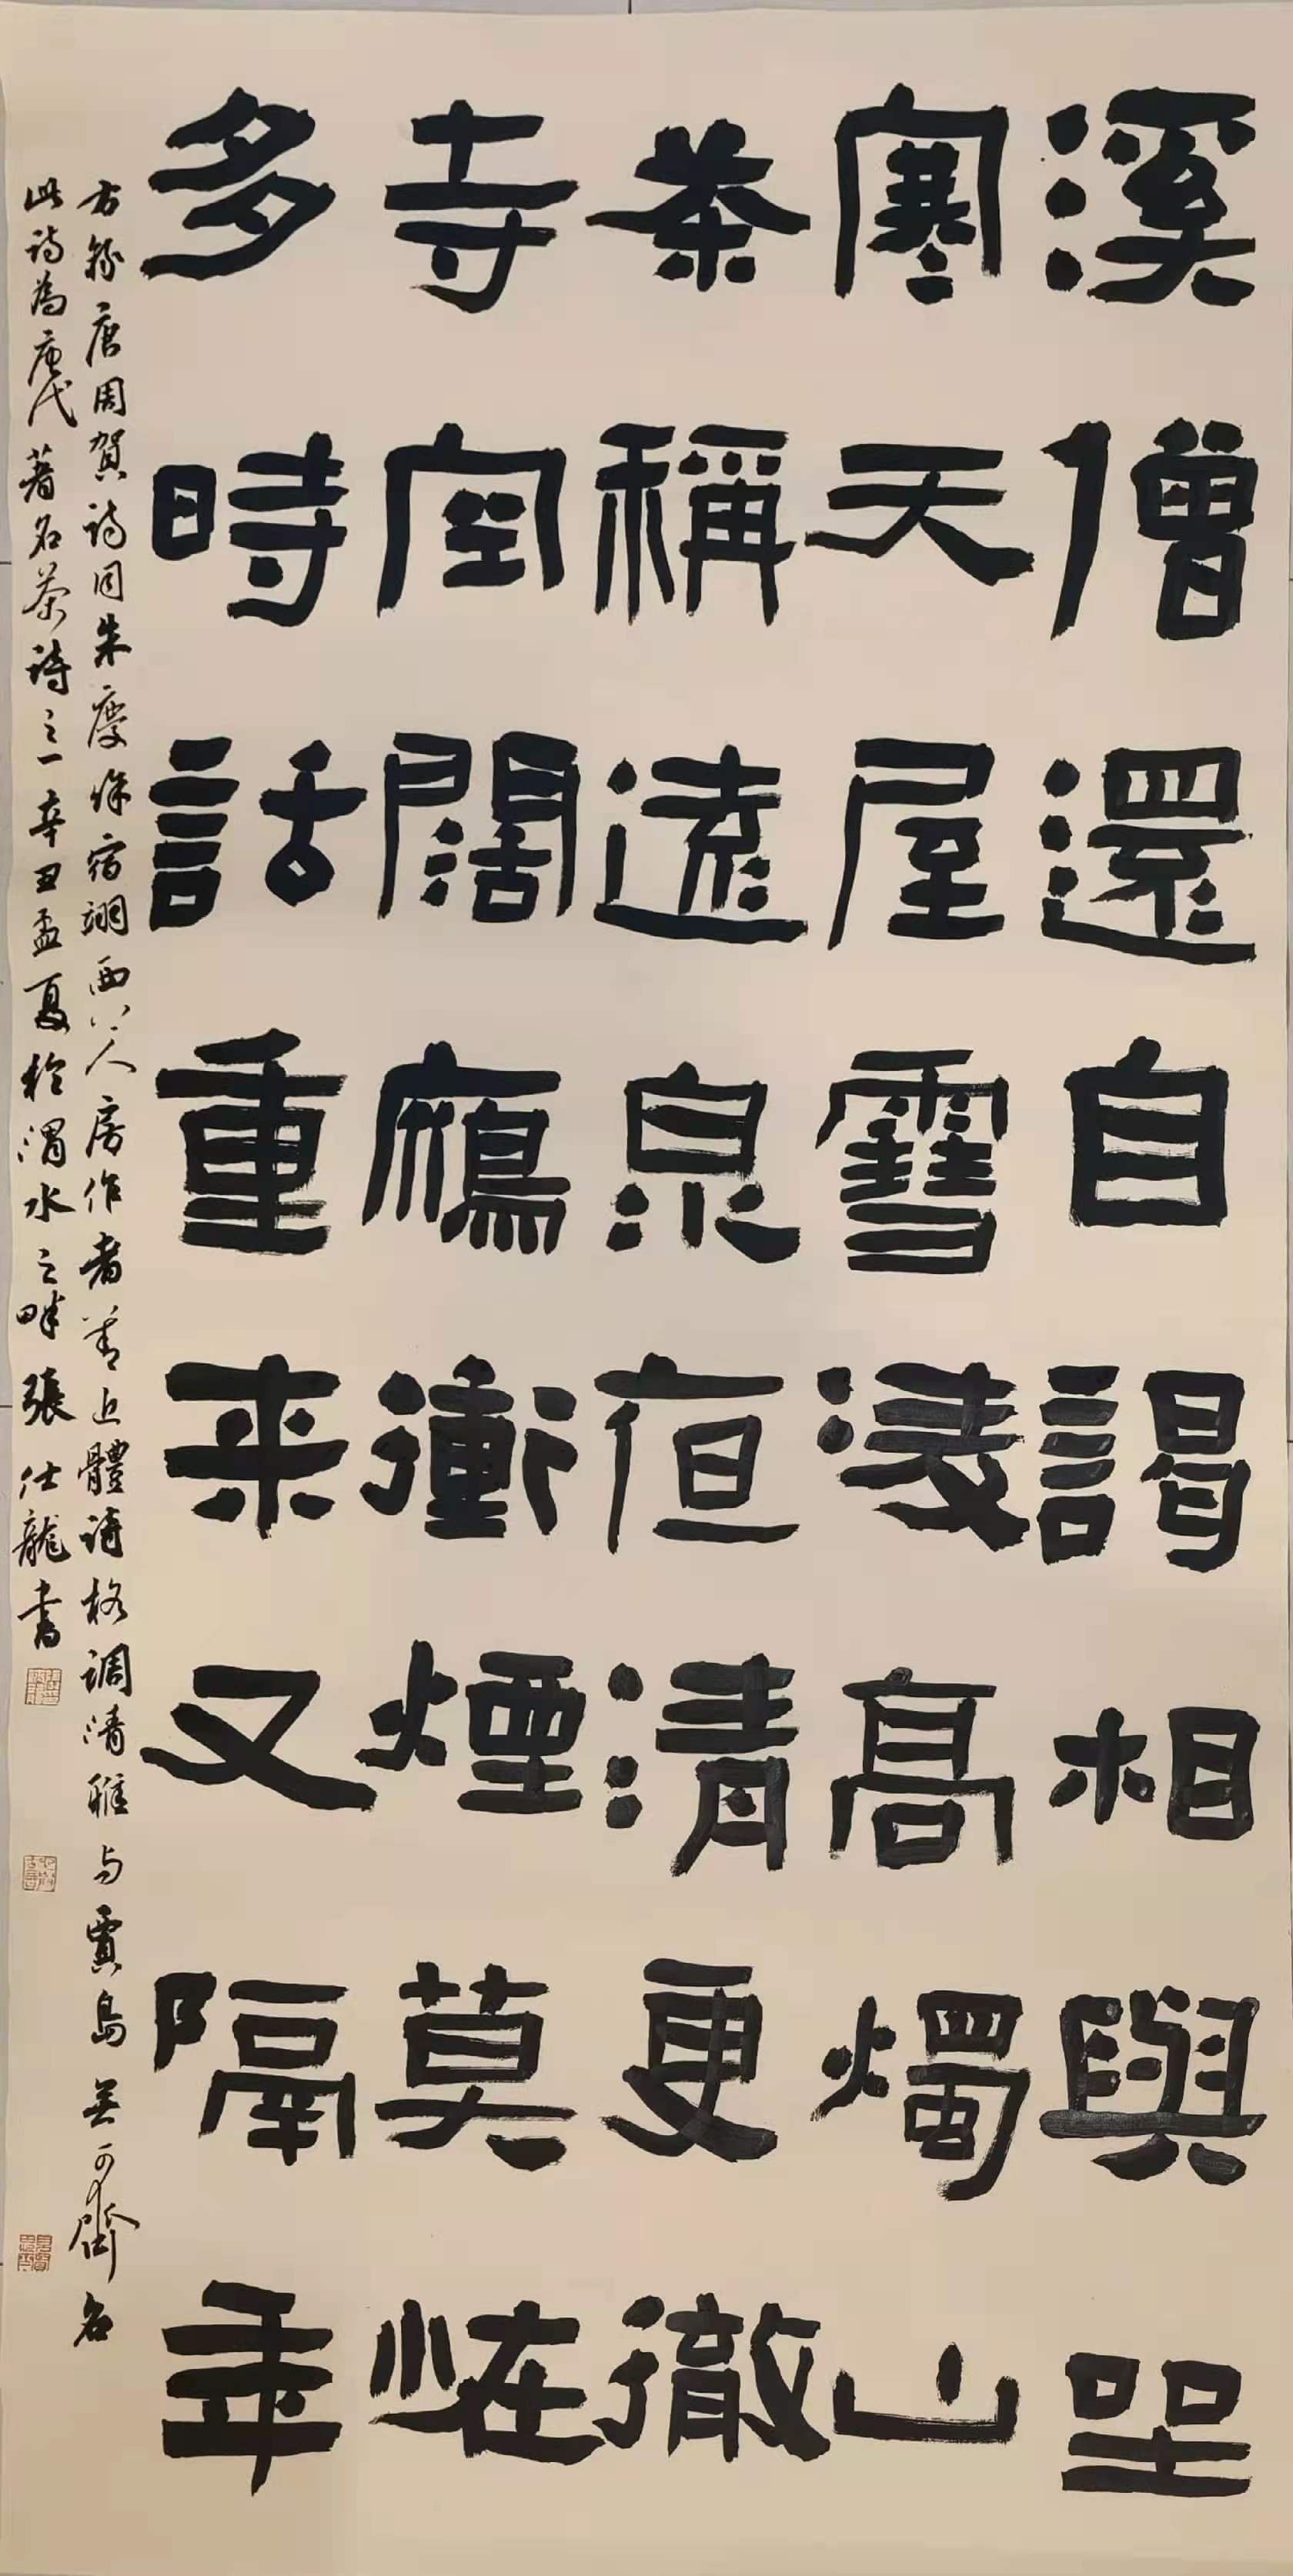 溪僧還自謁相與坐
寒天屋雪凌高燭山
茶稱遠泉亱清更徹
寺空闊鴈衝煙莫恠
多時話重来又隔年
右録唐周賀詩同朱慶馀宿翊西上人房作者善近體詩格調清雅与賈島無可齊名
此詩為唐代著名茶詩之一辛丑孟夏於渭水之畔張仕龍書